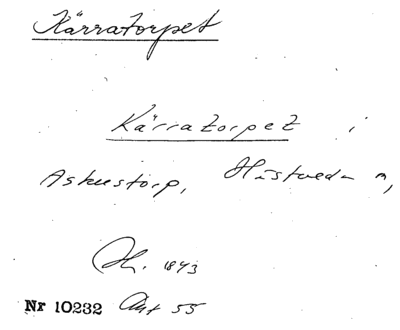 Kärratorpet
Kärratorpet i
Askestorp, Hästveda
1843
Nr 10232 Ant 55